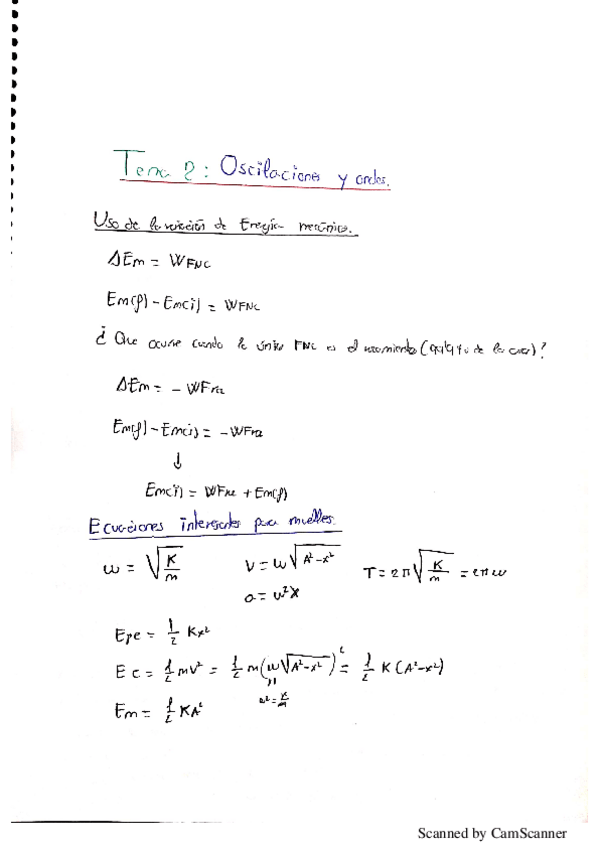 Tema 2: Oscilaciones y ondas.
Uso de la variación de Energía mecánica.
ΔEm = WFNC
Em(f) - Em(i) = WFNC
¿Que ocurre cuando la única FNC es el rozamiento ( de las )?
ΔEm = - WFrz
Em(f) - Em(i) = - WFrz
↓
Em(i) = WFrz + Em(f)
Ecuaciones interesantes para muelles.
ω = √(K/m) V = ω√(A²-x²) T = 2π√(K/m) = 2πω
a = ω²x
Epe = 1/2 Kx²
Ec = 1/2 mv² = 1/2 m(ω√(A²-x²))² = 1/2 K(A²-x²)
ω² = K/m
Em = 1/2 KA²
Scanned by CamScanner